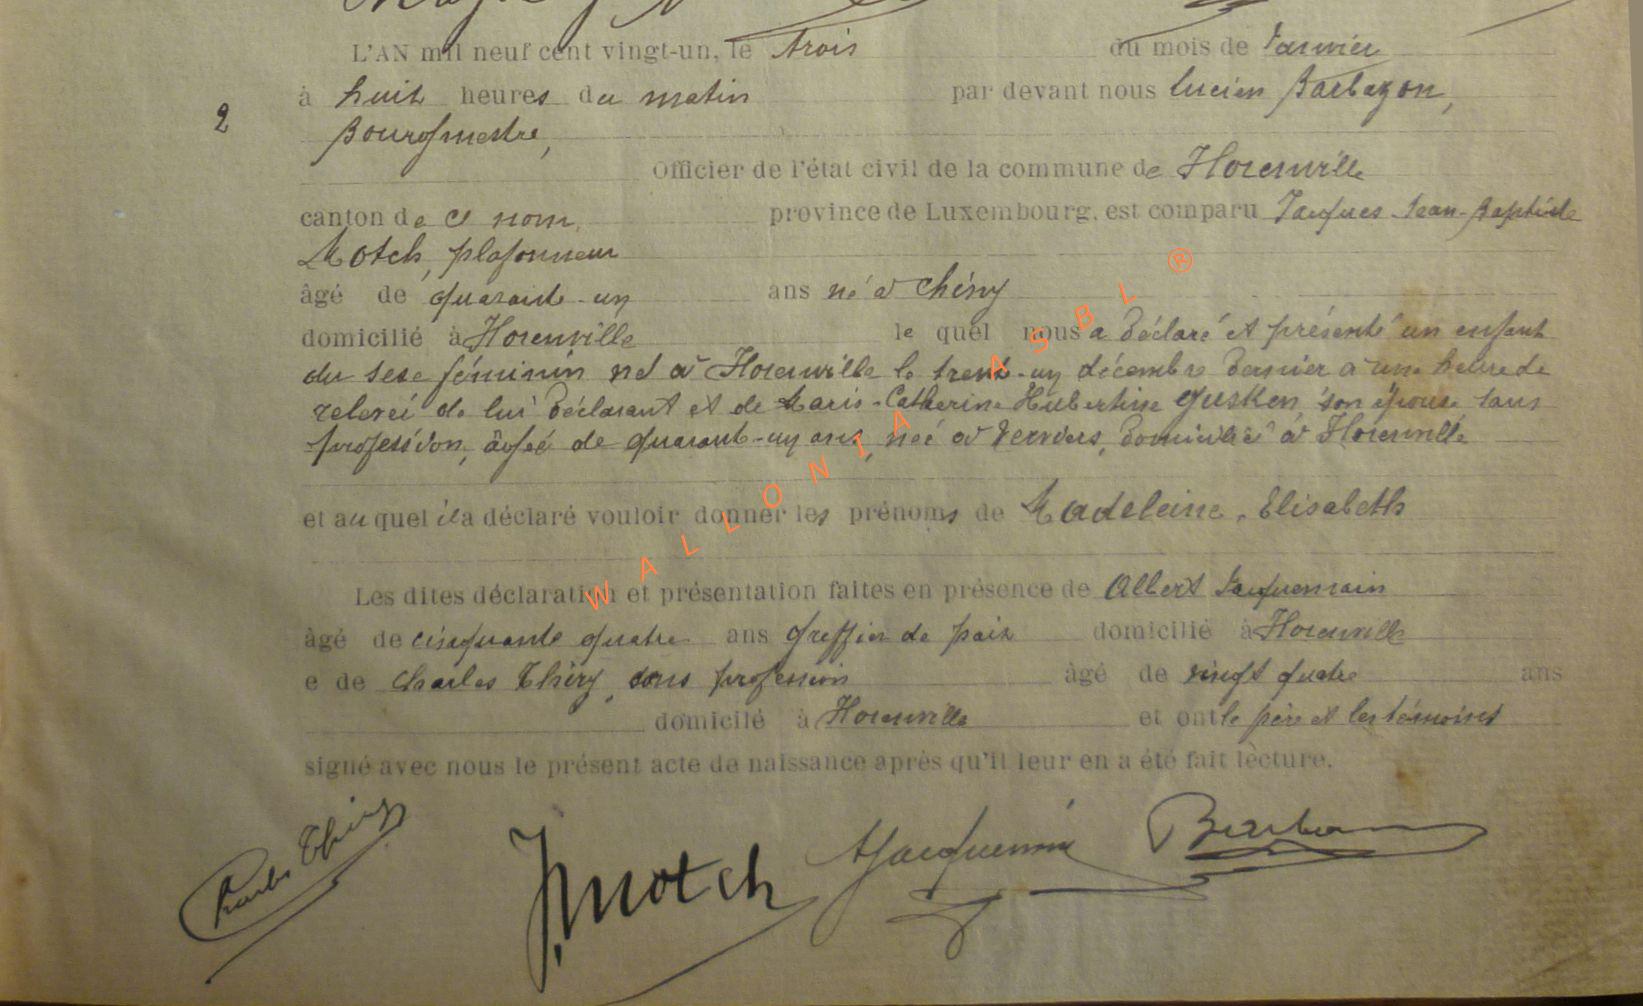 L'AN mil neuf cent vingt-un, le trois du mois de Janvier
à huit heures du matin par devant nous Lucien Barbazon,
2
Bourgmestre,
Officier de l'état civil de la commune de Florenville
canton de ce nom, province de Luxembourg, est comparu Jacques Jean-Baptiste
Motch, plafonneur
âgé de quarante-un ans né à Chiny
domicilié à Florenville le quel nous a déclaré et présenté un enfant
du sexe féminin né à Florenville le trente-un décembre dernier à une heure de
relevée de lui déclarant et de Marie-Catherine Hubertine Gusken, son épouse sans
profession, âgée de quarante-un ans, née à Verviers, domiciliée à Florenville
et au quel il a déclaré vouloir donner les prénoms de Madeleine, Elisabeth
Les dites déclaration et présentation faites en présence de Albert Jacquemain
âgé de cinquante quatre ans greffier de paix domicilié à Florenville
e de Charles Thiry, sans profession âgé de vingt quatre ans
domicilé à Florenville et ont le père et les témoins
signé avec nous le présent acte de naissance après qu'il leur en a été fait lecture.
Charles Thiry J. Motch AJacquemin
WALLONIA ASBL ®